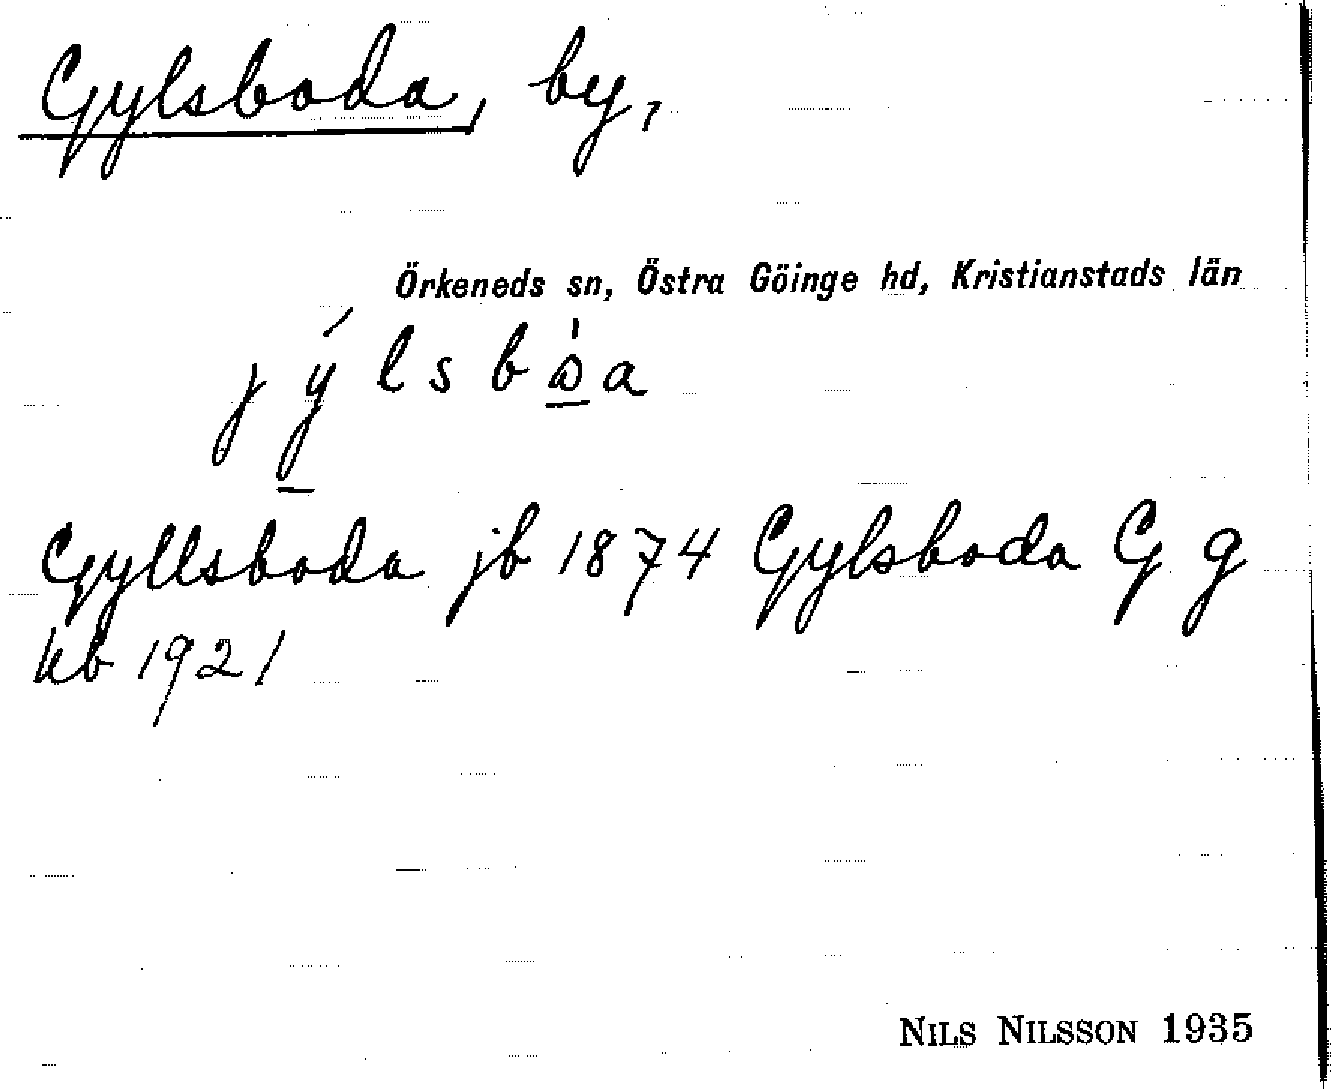 Gylsboda, by,
Örkeneds sn, Östra Göinge hd, Kristianstads län
Gyllsboda jb 1874 Gylsboda G g
kb 1921
NILS NILSSON 1935